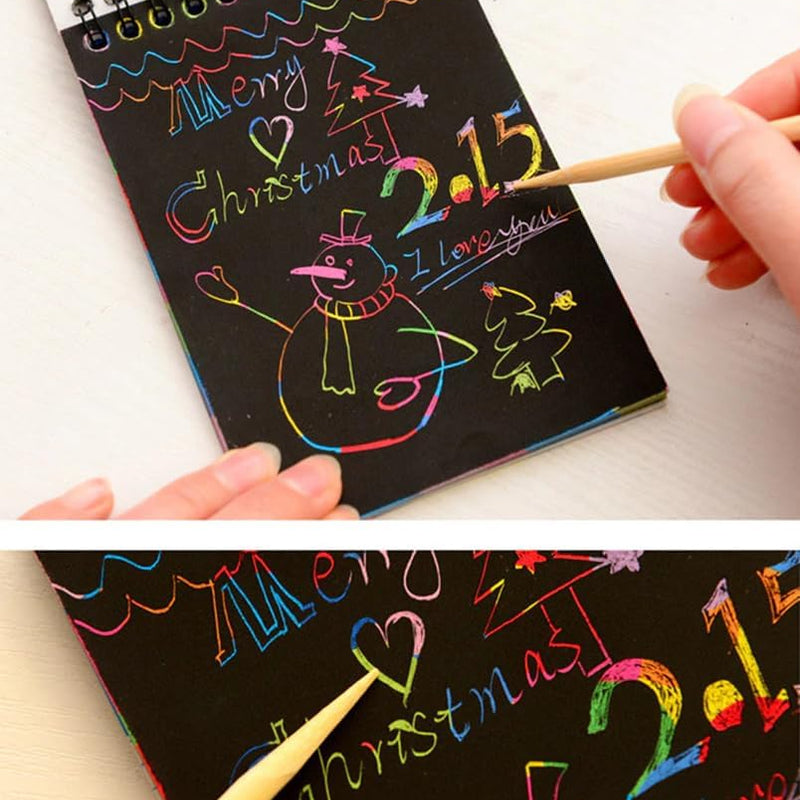 Merry
Christmas
2.15
I love you
Merry
Christmas
2.15